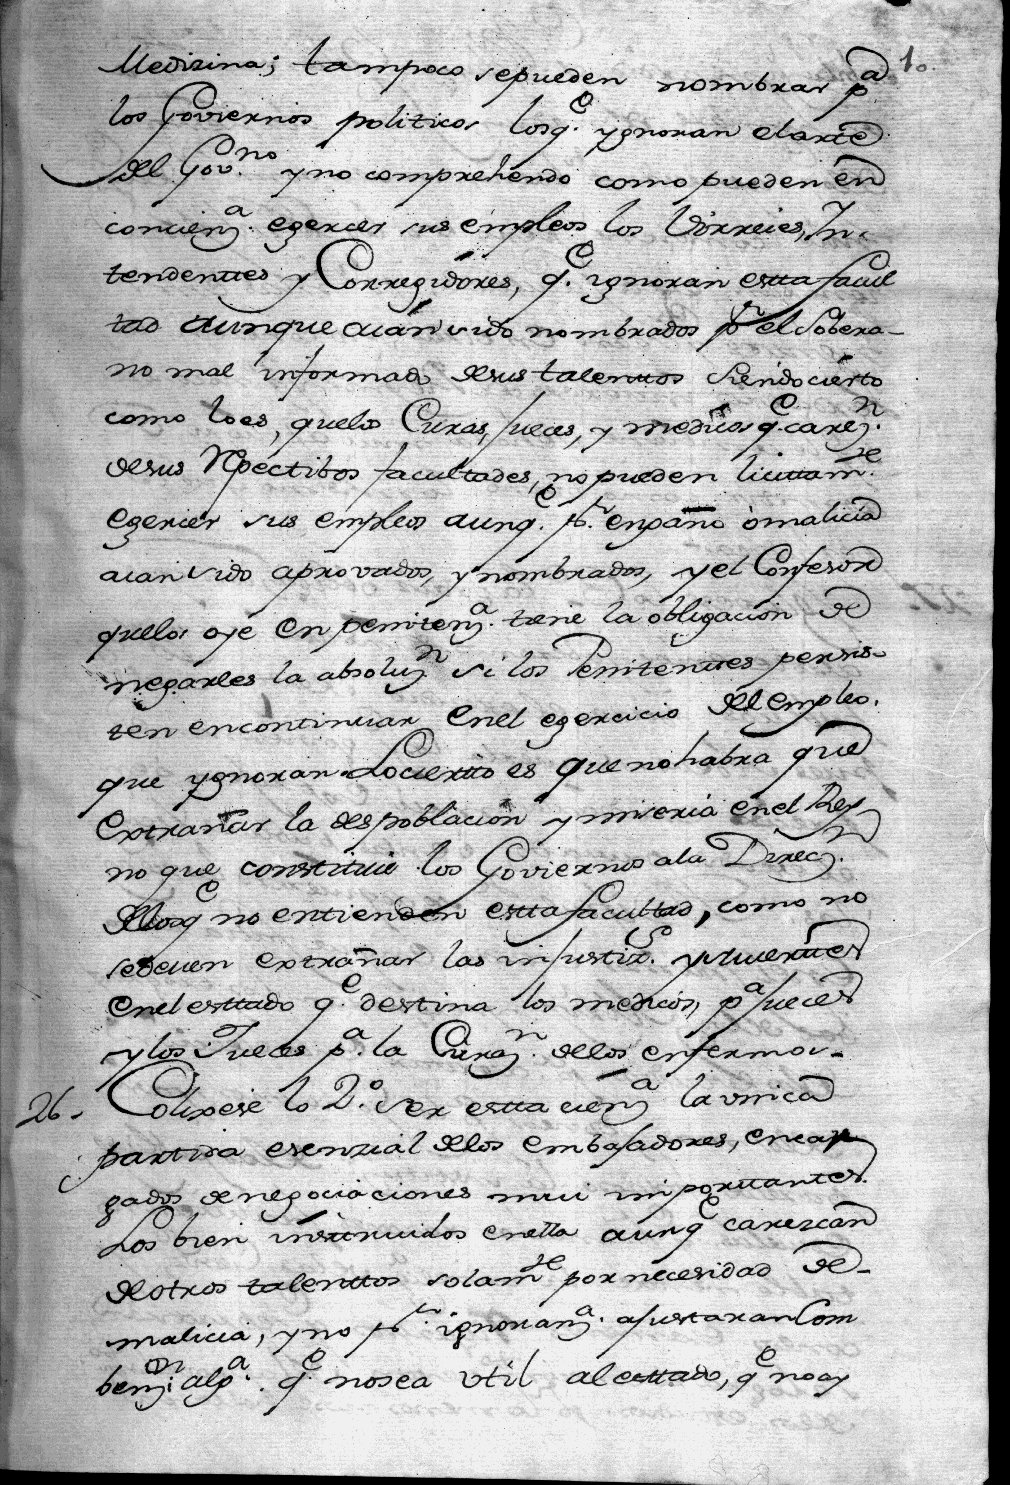 1.
Medizina; tampoco sepueden nombrar pª
los Goviernos politicos losq.e ygnoran elarte
del Gov.no yno comprehendo como pueden en
concienª. egercer sus empleos los Virreies, In-
tendentes y Corregidores, q.e ignoran estta facul
tad aunque aian sido nombrados p.r el Sobera-
no mal informado desus talenttos siendo cierto
como loes, quelos Curas, Jueces, y medicos q.e caren.
desus Rpectibos facultades, no pueden licittam.te
egercer sus empleos aunq.e p.r engaño ò malicia
aian sido aprovados, y nombrados, y el Confesor
quelos oye en penitenª. tiene la obligacion de
negarles la absoluz.n si los Penitenttes persis-
ten encontinuar enel egercicio del empleo.
que ygnoran. Lo cierto es que no habra que
extrañar la despoblacion y miseria enel Rey
no que constitui los Goviernos ala Direcz.
delosq.e no entienden estta facultad, como no
sedeven extrañar las injustiz.s y muerttes
enel esttado q.e destina los medicos, pª jueces
y los Jueces pª. la Curaz.n delos enfermos.-
26. Colixese lo 2.º Ser estta cienª la unica
partida esenzial delos embajadores, encar
gados de negociaciones mui importtantes.
Los bien instruidos enella aunq.e carezcan
de otros talenttos solam.te por necesidad de-
malicia, y no p.r ignoranª. ajustaran Com
benz.on alg.ª q.e nosea util al esttado, q.e no ay